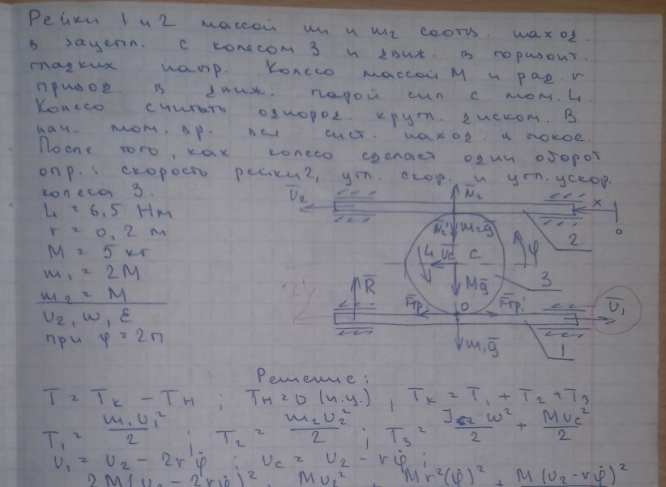 Рейки 1 и 2 массой m₁ и m₂ соотв. наход.
в зацепл. с колесом 3 и движ. в горизонт.
гладких напр. Колесо массой M и рад. r
привод. в движ. парой сил с мом. L.
Колесо считать однород. кругл. диском. В
нач. мом. вр. вся сист. наход. в покое.
После того, как колесо сделает один оборот
опр.: скорость рейки 2, угл. скор. и угл. ускор.
колеса 3.
L = 6,5 Нм
r = 0,2 м
M = 5 кг
m₁ = 2M
m₂ = M
υ₂, ω, ε
при φ = 2π
υ̅₂
N̅₂
x
0
N₂'
m₂g̅
L
υ̅c
C
φ
2
3
Mg̅
R̅
F̅тр
0
F̅тр'
υ̅₁
m₁g̅
1
Решение:
T = Tк − Tн ; Tн = 0 (н.у.) ; Tк = T₁ + T₂ + T₃
T₁ = m₁υ₁²/2 ; T₂ = m₂υ₂²/2 ; T₃ = ω²/2 + Mυc²/2
υ₁ = υ₂ − 2rφ̇ ; υc = υ₂ − rφ̇ ;
2M(υ₂ − 2rφ̇)² Mυ₂² Mr²(φ̇)² + M(υ₂ − rφ̇)²